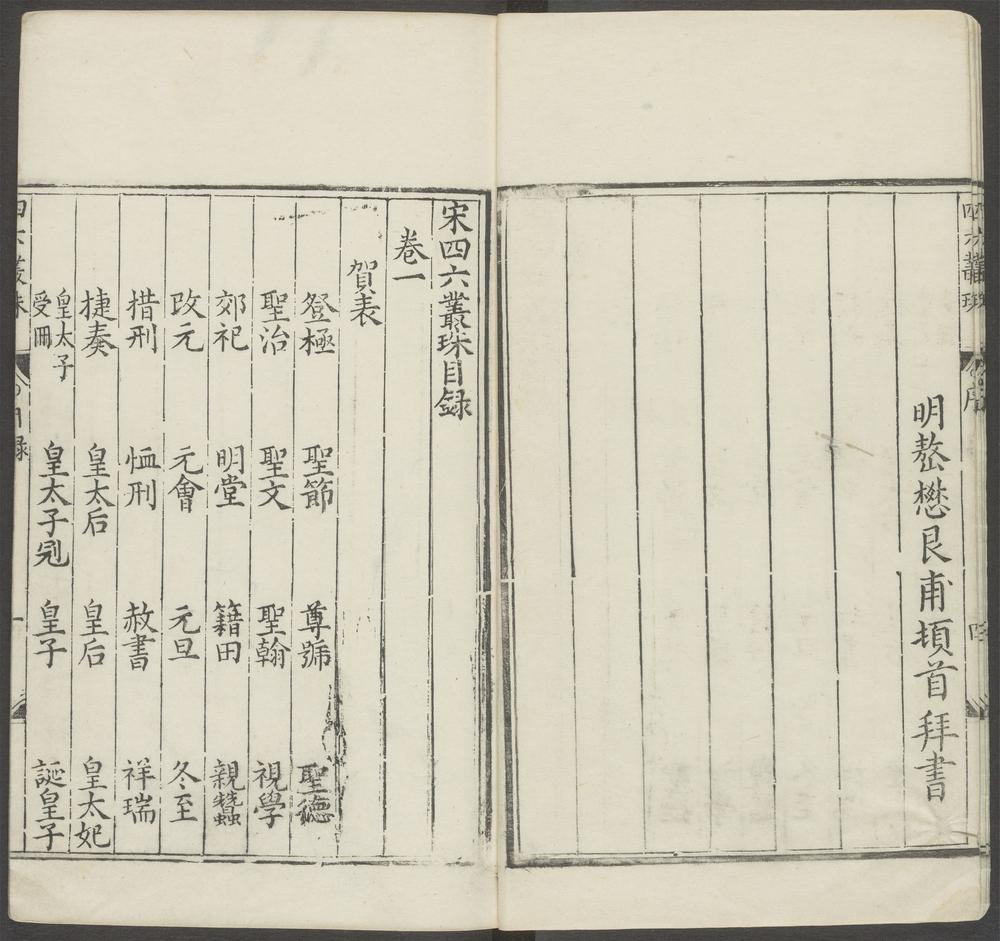 四六叢珠
序
四
明嶅懋艮甫頓首拜書
宋四六叢珠目録
卷一
賀表
登極 聖節 尊號 聖德
聖治 聖文 聖翰 視學
郊祀 明堂 籍田 親蠶
改元 元會 元旦 冬至
措刑 恤刑 赦書 祥瑞
捷奏 皇太后 皇后 皇太妃
皇太子受冊 皇太子 皇子 誕皇子
四六叢珠
目録
一